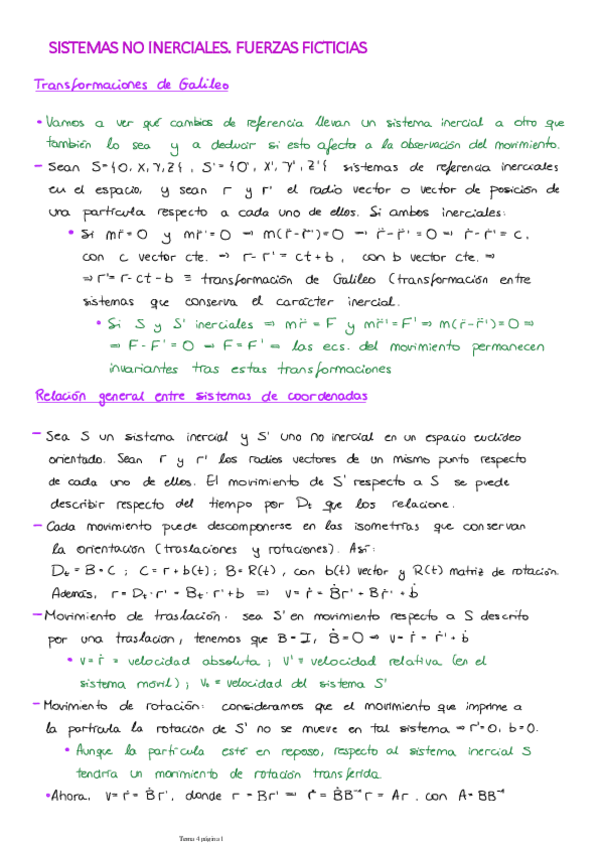 SISTEMAS NO INERCIALES. FUERZAS FICTICIAS
Transformaciones de Galileo
• Vamos a ver qué cambios de referencia llevan un sistema inercial a otro que
también lo sea y a deducir si esto afecta a la observación del movimiento.
- Sean S={O, X, Y, Z}, S'={O', X', Y', Z'} sistemas de referencia inerciales
en el espacio, y sean r y r' el radio vector o vector de posición de
una partícula respecto a cada uno de ellos. Si ambos inerciales:
• Si mr̈=0 y mr̈'=0 ⇒ m(r̈-r̈')=0 ⇒ r̈-r̈'=0 ⇒ ṙ-ṙ'=c,
con c vector cte. ⇒ r-r'=ct+b, con b vector cte. ⇒
⇒ r'=r-ct-b ≡ transformación de Galileo (transformación entre
sistemas que conserva el carácter inercial.
• Si S y S' inerciales ⇒ mr̈=F y mr̈'=F' ⇒ m(r̈-r̈')=0 ⇒
⇒ F-F'=0 ⇒ F=F' ⇒ las ecs. del movimiento permanecen
invariantes tras estas transformaciones
Relación general entre sistemas de coordenadas
- Sea S un sistema inercial y S' uno no inercial en un espacio euclídeo
orientado. Sean r y r' los radios vectores de un mismo punto respecto
de cada uno de ellos. El movimiento de S' respecto a S se puede
describir respecto del tiempo por Dt que los relacione.
- Cada movimiento puede descomponerse en las isometrías que conservan
la orientación (traslaciones y rotaciones). Así:
Dt=B∘C; C=r+b(t); B=R(t), con b(t) vector y R(t) matriz de rotación.
Además, r=Dt·r'=Bt·r'+b ⇒ v=ṙ=Ḃr'+Bṙ'+ḃ
- Movimiento de traslación: sea S' en movimiento respecto a S descrito
por una traslación, tenemos que B=I, Ḃ=0 ⇒ v=ṙ=ṙ'+ḃ
• v=ṙ ≡ velocidad absoluta; v'≡ velocidad relativa (en el
sistema móvil); v₀ ≡ velocidad del sistema S'
- Movimiento de rotación: consideramos que el movimiento que imprime a
la partícula la rotación de S' no se mueve en tal sistema ⇒ ṙ'=0, b=0.
• Aunque la partícula esté en reposo, respecto al sistema inercial S
tendría un movimiento de rotación transferida.
• Ahora, v=ṙ=Ḃr', donde r=Br' ⇒ ṙ=ḂB⁻¹r=Ar, con A=ḂB⁻¹
Tema 4 página 1